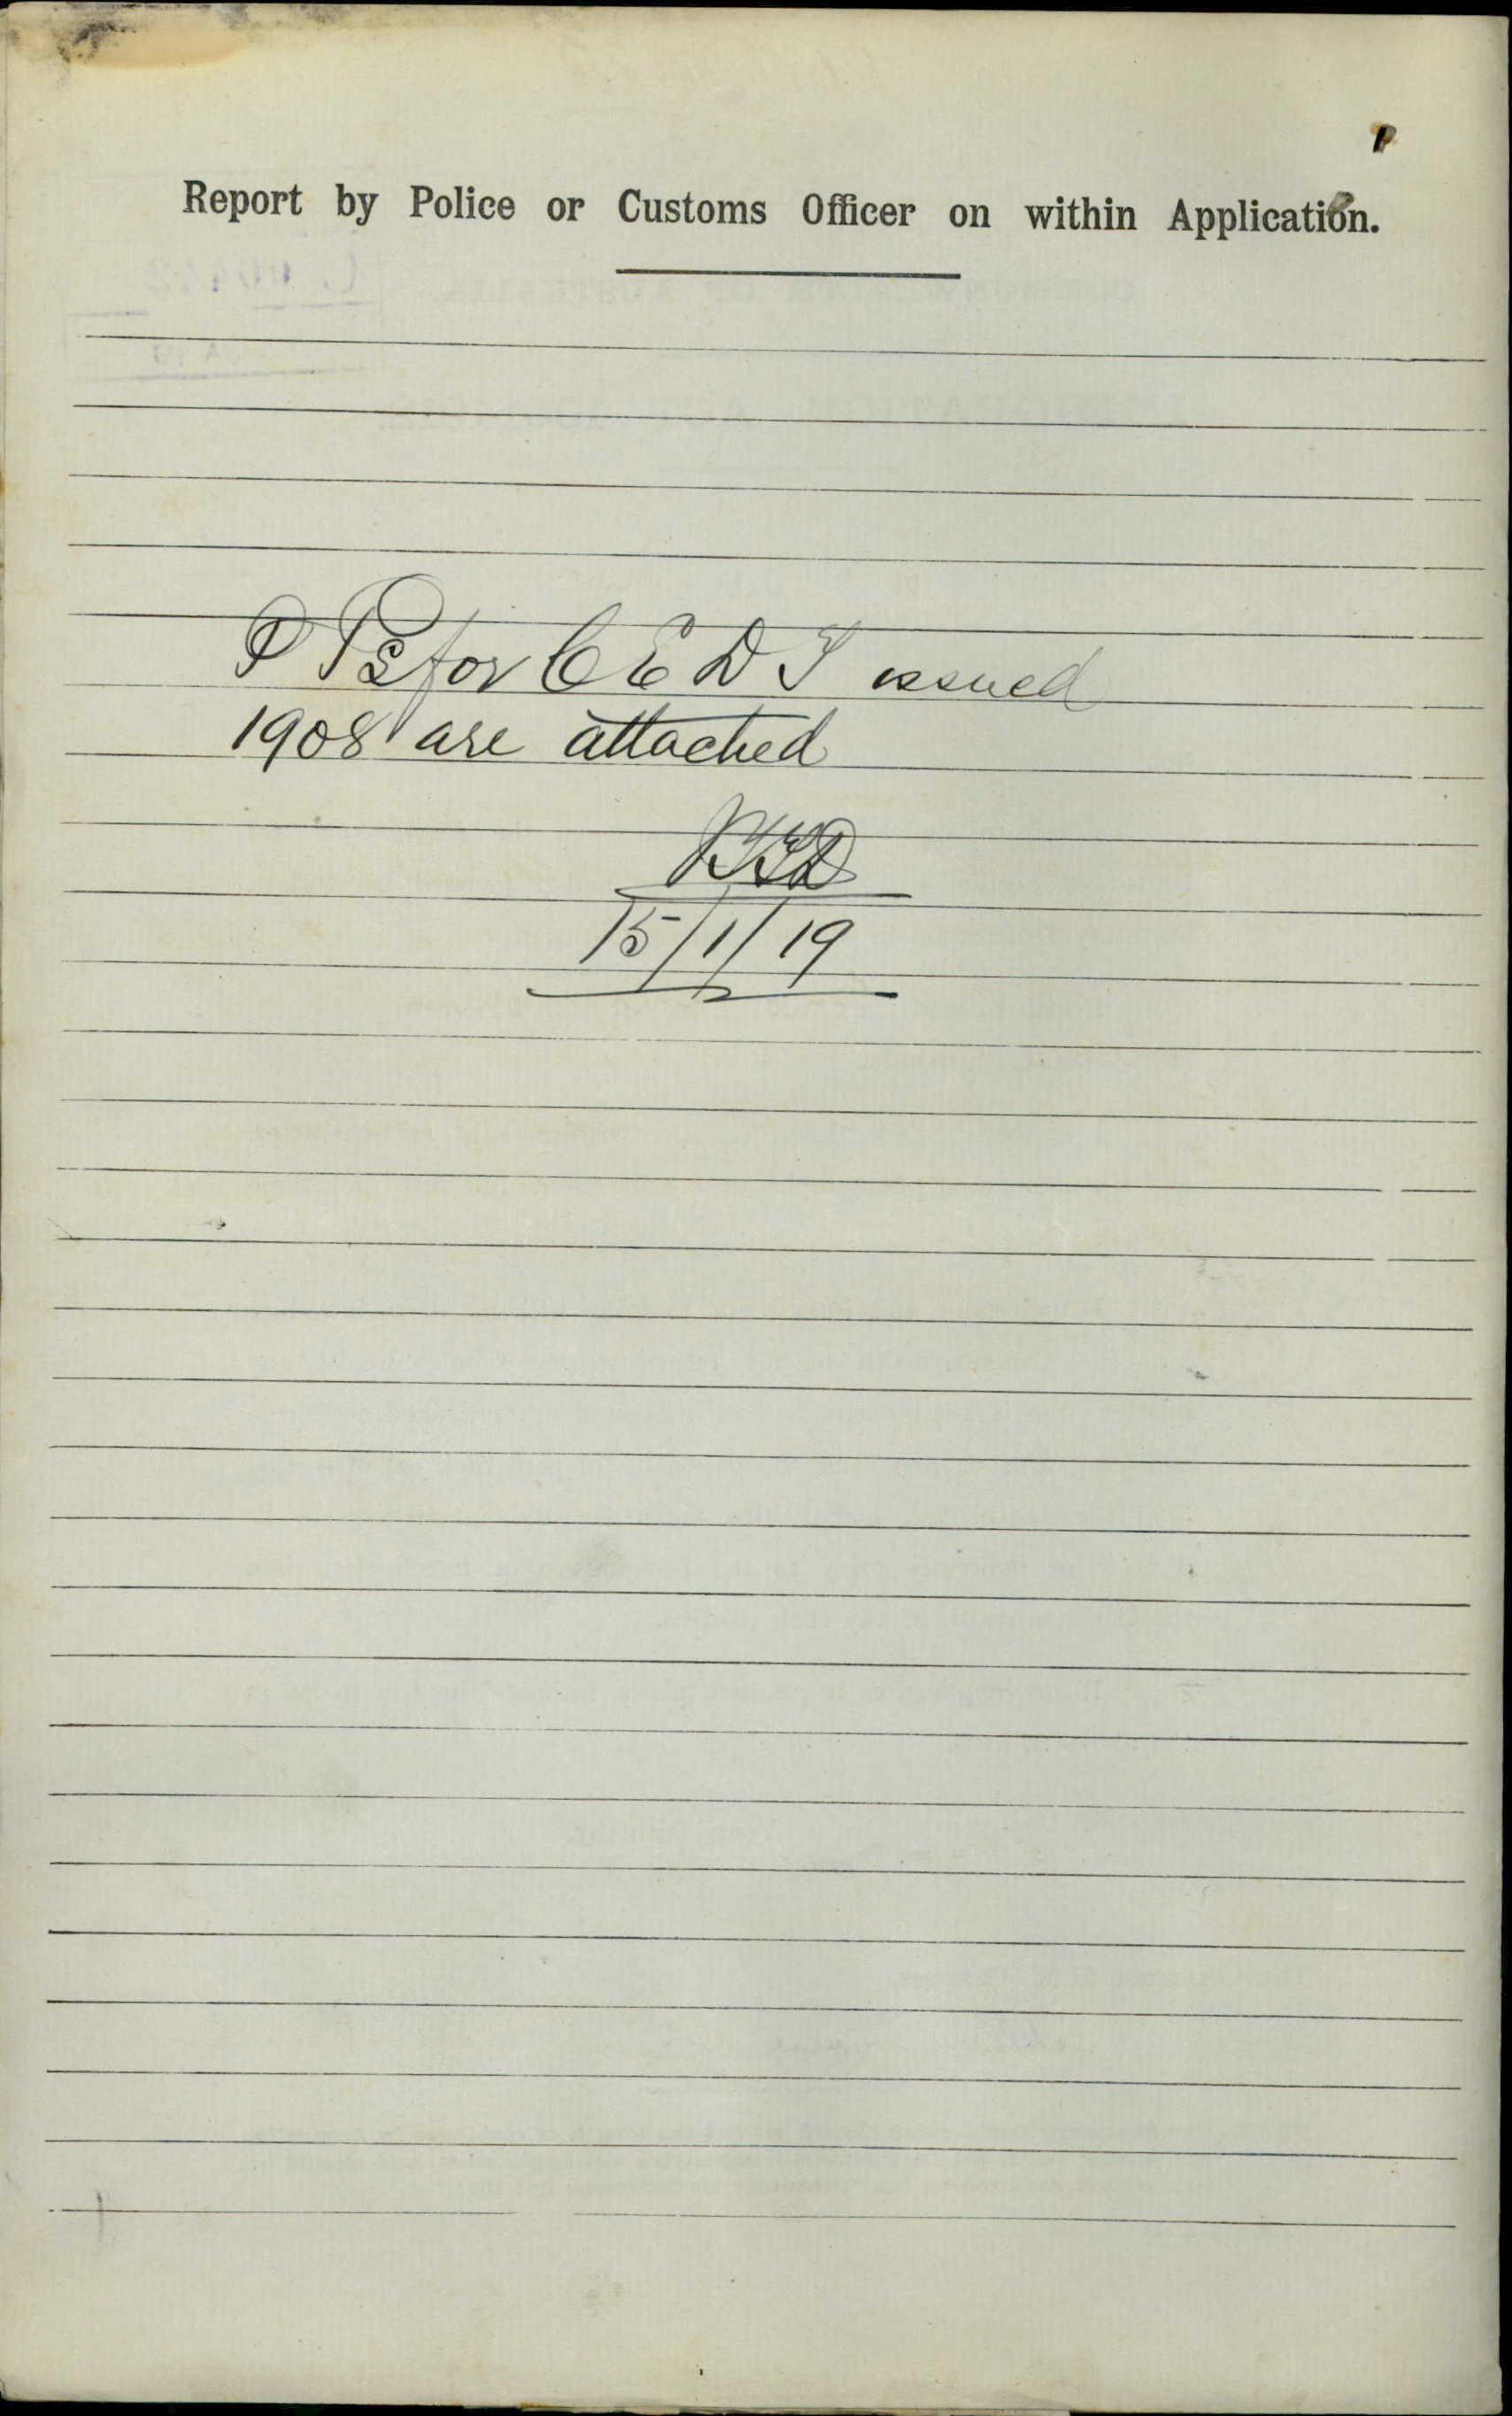 Report by Police or Customs Officer on within Application.
P Ps for C E D T issued
1908 are attached
15/1/19